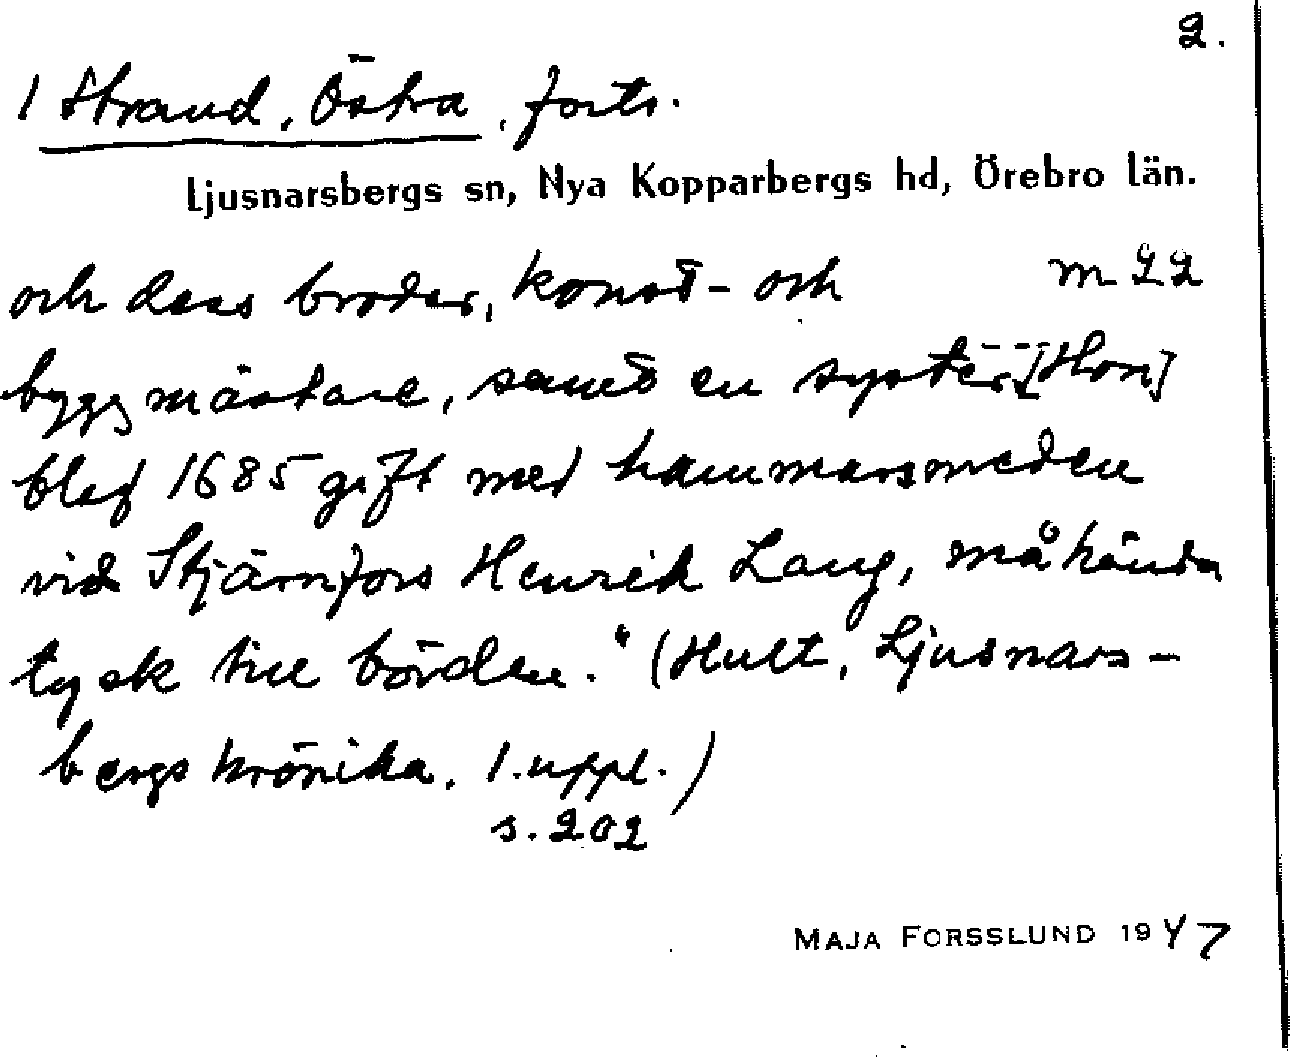 2.
1 Strand, Östra, forts.
Ljusnarsbergs sn, Nya Kopparbergs hd, Örebro län.
och dess broder, konst- och m 22
byggmästare, samt en syster [Hon]
blef 1685 gift med hammarsmeden
vid Stjärnfors Henrik Lang, måhända
tysk till börden." (Hult, Ljusnars-
bergs krönika. 1. uppl.)
s. 202
MAJA FORSSLUND 1947